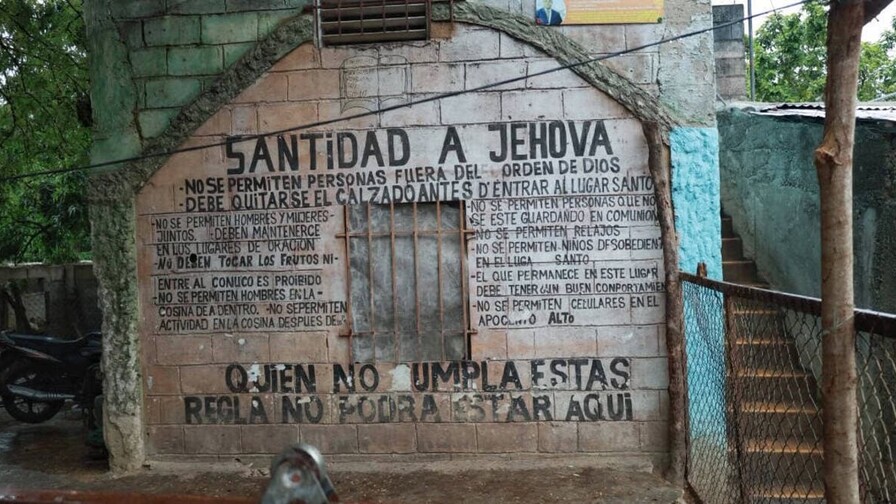 SANTIDAD A JEHOVA
-NO SE PERMITEN PERSONAS FUERA DEL ORDEN DE DIOS
-DEBE QUITARSE EL CALZADO ANTES D'ENTRAR AL LUGAR SANTO
-NO SE PERMITEN HOMBRES Y MUJERES
JUNTOS. -DEBEN MANTENERCE
EN LOS LUGARES DE ORACION
-NO DEBEN TOCAR LOS FRUTOS NI-
ENTRE AL CONUCO ES PROIBIDO
-NO SE PERMITEN HOMBRES EN LA-
COSINA DE ADENTRO. -NO SEPERMITEN
ACTIVIDAD EN LA COSINA DESPUES DE
-NO SE PERMITEN PERSONAS QUE NO
SE ESTE GUARDANDO EN COMUNION
-NO SE PERMITEN RELAJOS
-NO SE PERMITEN NIÑOS DESOBEDIEN
EN EL LUGA SANTO
-EL QUE PERMANECE EN ESTE LUGAR
DEBE TENER UN BUEN COMPORTAMIEN
-NO SE PERMITEN CELULARES EN EL
APOCENTO ALTO
QUIEN NO CUMPLA ESTAS
REGLA NO PODRA ESTAR AQUI